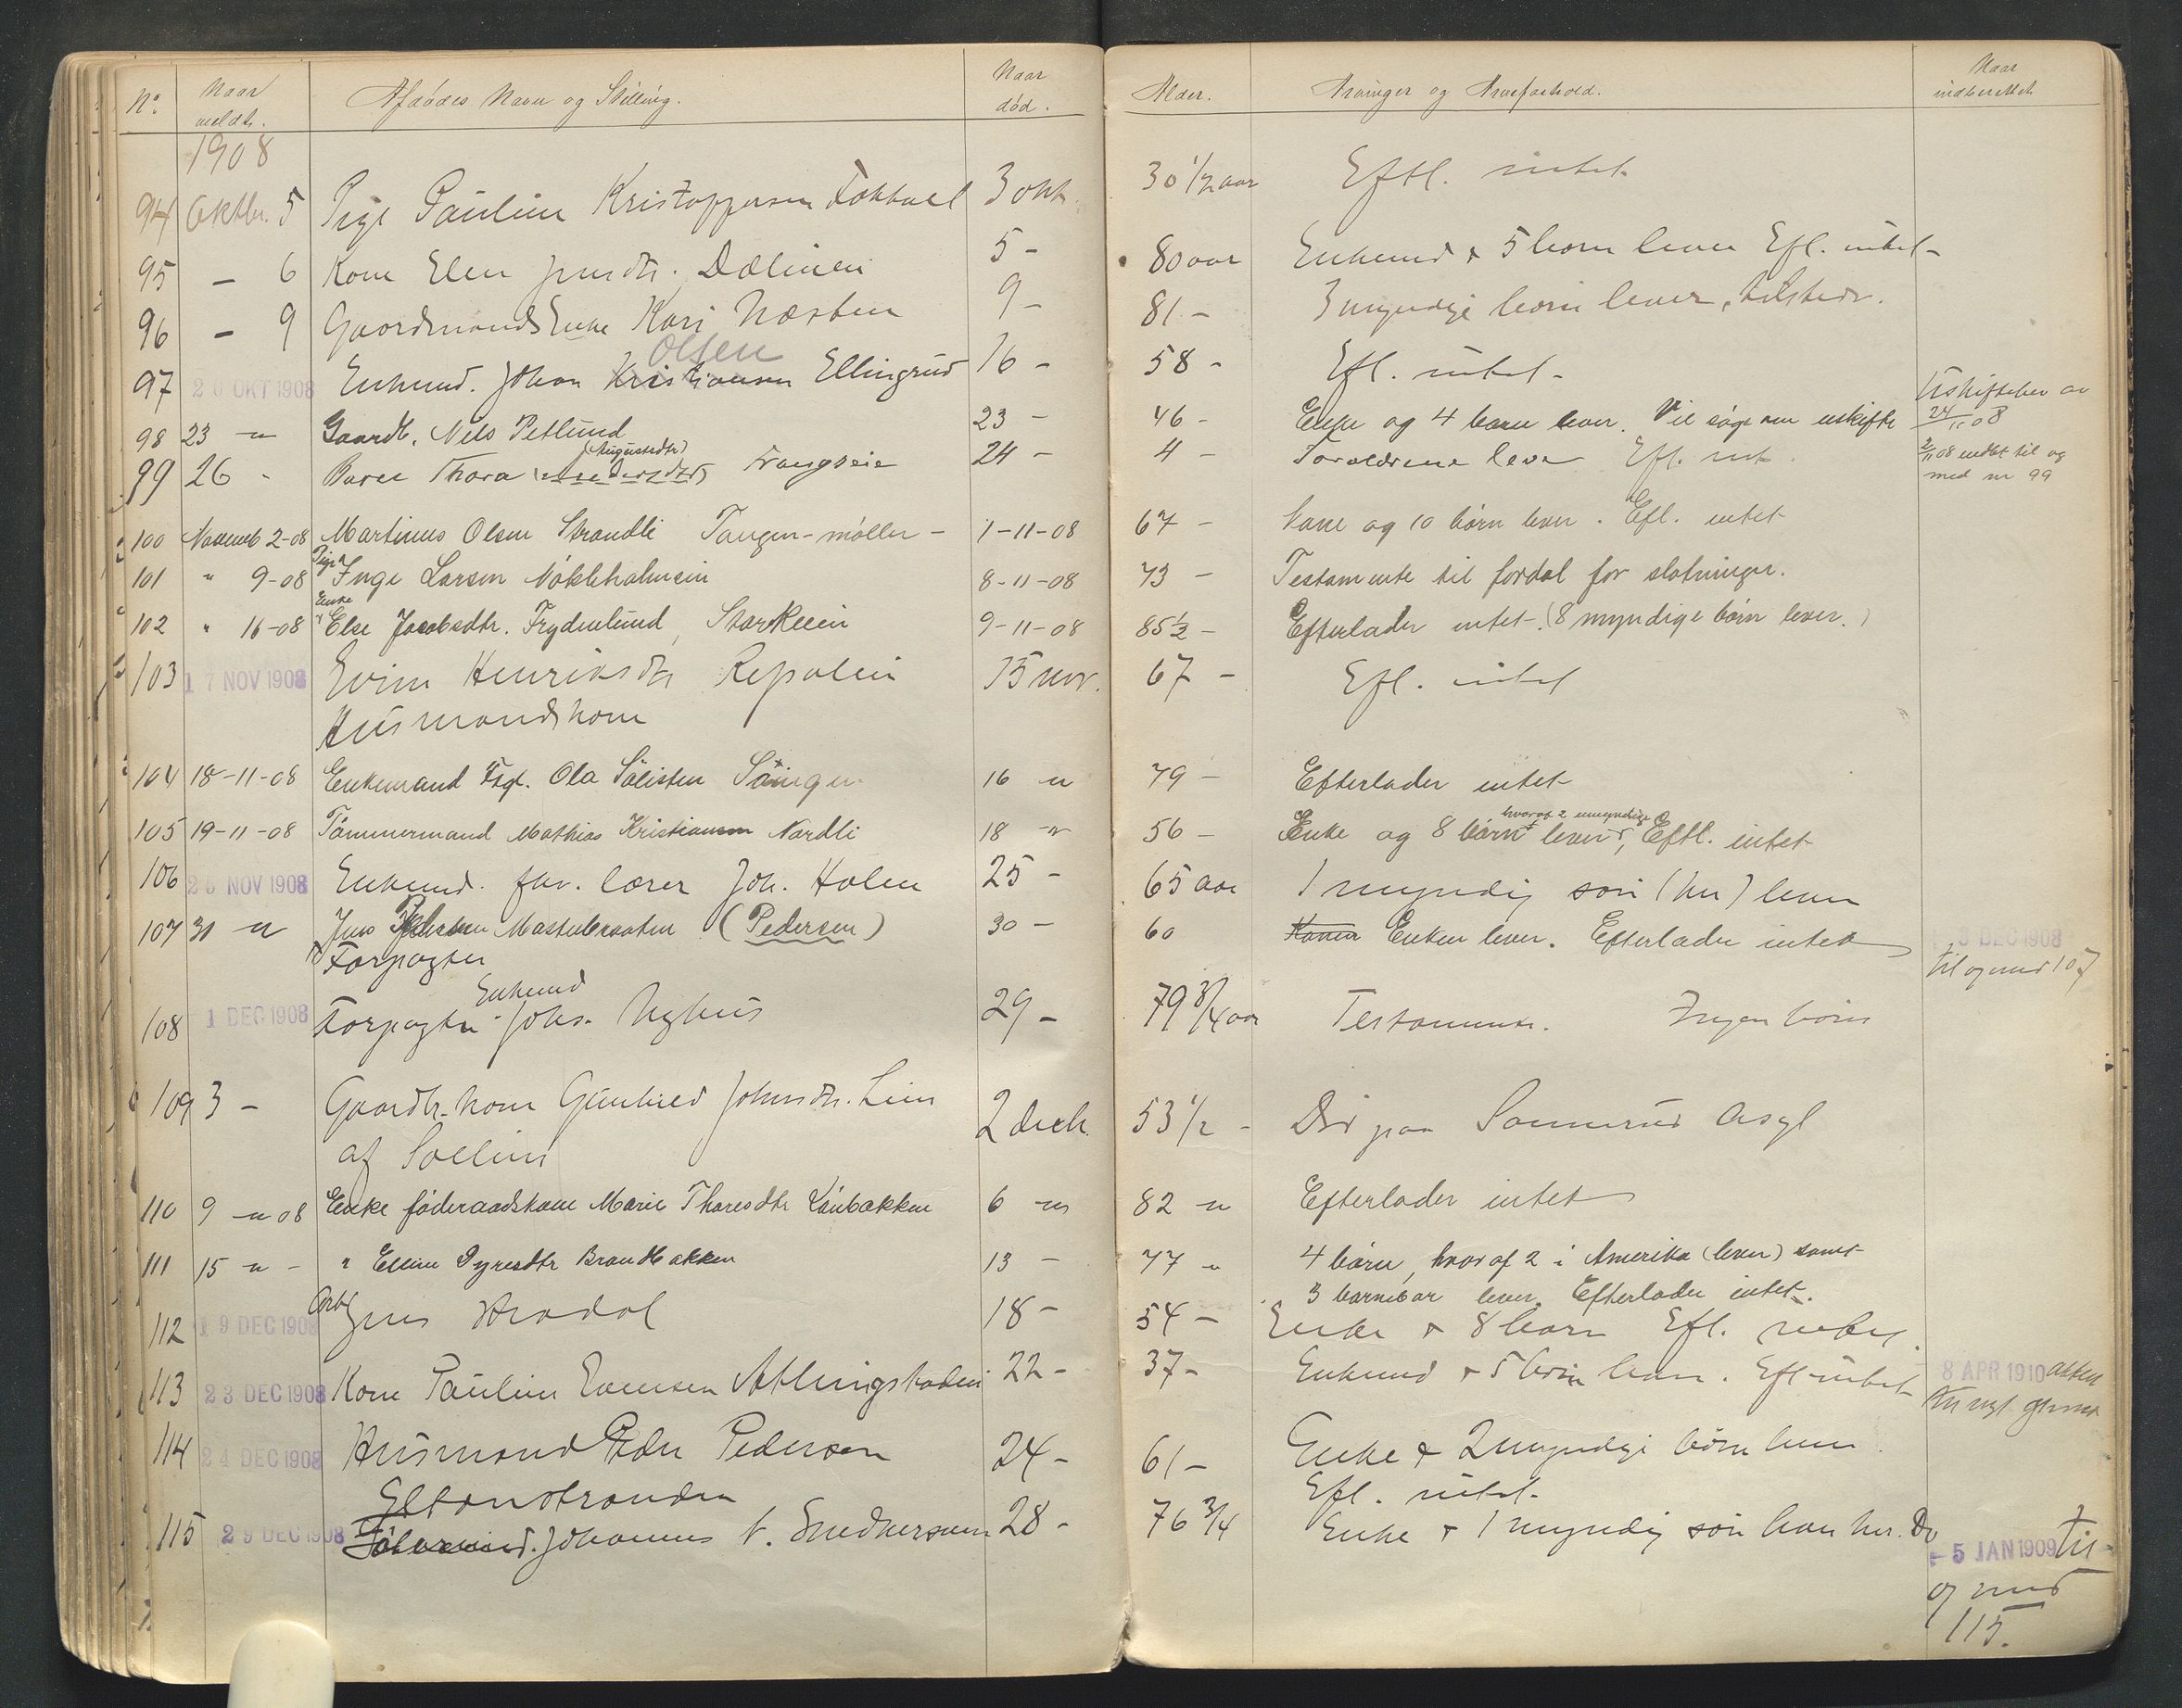 No. Naar meldt. Afdødes Navn og Stilling. Naar død. Alder. Arvinger og Arveforhold. Naar indberettet
1908
94 Oktbr. 5 Pige Pauline Kristoffersen 3 okt. 30 1/2 aar Eftl. intet
95 - 6 Kone Elen Jensdtr. Dælineie 5 - 80 aar Enkemd + 5 børn lever Efl. intet -
96 - 9 Gaardmands Enke Kari Næsten 9 - 81 - 3 myndige børn lever, tilstede.
Olsen
97 20 OKT 1908 Enkemd. Johan Kristiansen Ellingrud 16 - 58 - Efl. intet -
98 23 - Gaardb. Nils Petlund 23 - 46 - Enke og 4 børn lever. Vil søge om uskifte Uskiftebev av 24/11 08
(Augustsdtr)
99 26 - Barn Thora Trangseie 24 - 4 - Forældrene lever Efl. int. 2/11 08 indbt til og
med nr 99
100 Novemb 2-08 Martinus Olsen Strandli Tangen-møller - 1-11-08 67 - Kone og 10 børn lever. Efl. intet
Pige
101 " 9-08 Inge Larsen Nøklebholmein 8-11-08 73 - Testamente til fordel for slægtninger.
Enke
102 " 16-08 Else Jacobsdtr. Frydenlund, Starkeein 9-11-08 85 1/2 - Efterlader intet. (8 myndige børn lever.)
103 17 NOV 1908 Evine Henriksdtr Repaleie 15 nov. 67 - Efl. intet
Husmandskone
104 18-11-08 Enkemand Fsgt. Ola Sølisten 16 " 79 - Efterlader intet
hvoraf 2 umyndige
105 19-11-08 Tømmermand Mathias Kristiansen Nordli 18 " 56 - Enke og 8 børn lever, Eftl. intet
106 25 NOV 1908 Enkemd. fhv. lærer Joh. Holen 25 - 65 aar 1 myndig søn (her) lever
107 30 " Jens Mastebraaten (Pedersen) 30 - 60 Konen Enken lever. Efterlader intet 3 DEC 1908
Forpagter til og med 107
Enkemd
108 1 DEC 1908 Forpagter Johs. Nyhus 29 - 79 3/4 aar Testamente. Ingen børn
109 3 - Gaardb. kone Gunhild Johnsdtr. Lien 2 decb. 53 1/2 - Død paa Sannerud Asyl
af Sollien
110 9 " 08 Enke føderaadskone Marie Thoresdtr Lønbakken 6 " 82 " Efterlader intet
111 15 " - " Elline Syvresdtr Brandbakken 13 - 77 " 4 børn, hvoraf 2 i Amerika (lever) samt
3 barnebar lever. Efterlader intet.
Arb.
112 19 DEC 1908 Jens 18 - 54 - Enke + 8 børn Efl. intet.
113 23 DEC 1908 Kone Pauline Evensen 22 - 37 - Enkemd + 5 børn lever. Efl intet 8 APR 1910
114 24 DEC 1908 Husmand Peder Pedersen 24 - 61 - Enke + 2 myndige børn lever.
Eltonstranden Efl. intet.
115 29 DEC 1908 Johannes 28 - 76 3/4 Enke + 1 myndig søn - 5 JAN 1909 til
og med
115.